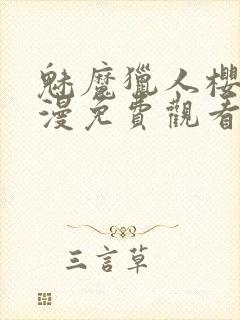 魅魔獵人櫻
漫免費觀看
三言草